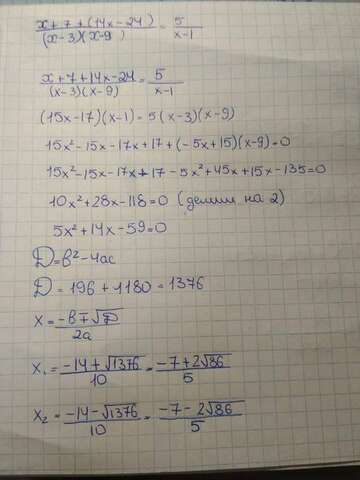 x+7+(14x-24)/(x-3)(x-9) = 5/x-1
x+7+14x-24/(x-3)(x-9) = 5/x-1
(15x-17)(x-1)=5(x-3)(x-9)
15x²-15x-17x+17+(-5x+15)(x-9)=0
15x²-15x-17x+17-5x²+45x+15x-135=0
10x²+28x-118=0 (делим на 2)
5x²+14x-59=0
D=b²-4ac
D=196+1180=1376
x=-b∓√D/2a
x₁=-14+√1376/10=-7+2√86/5
x₂=-14-√1376/10=-7-2√86/5